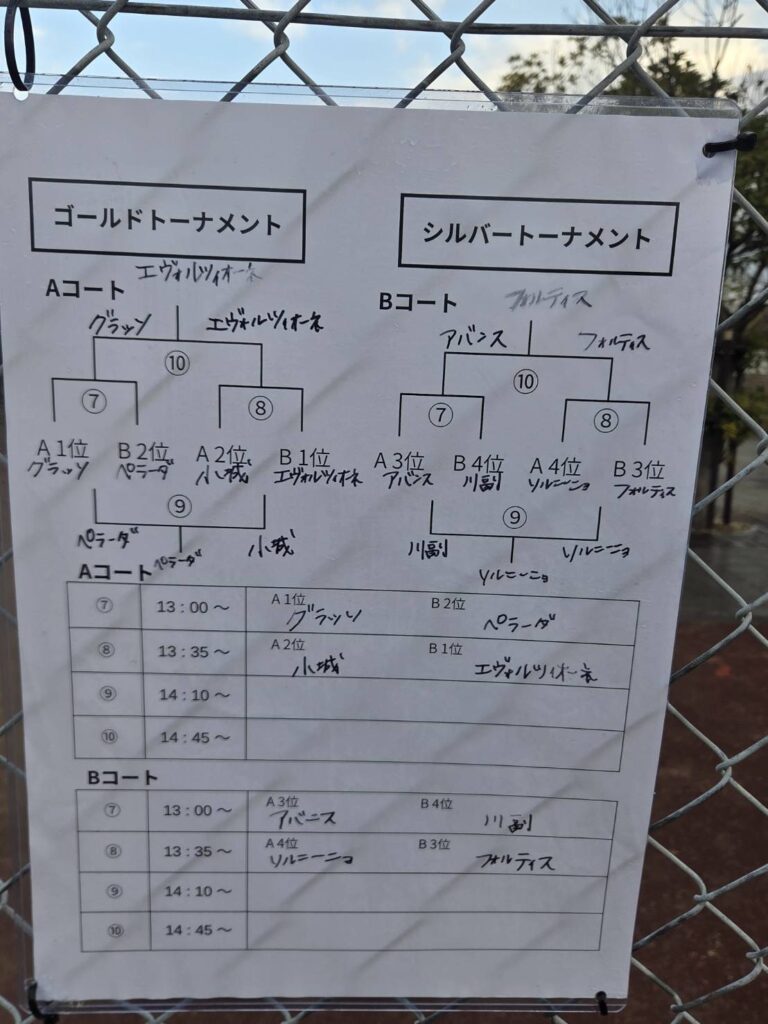 ゴールドトーナメント シルバートーナメント
Aコート エヴォルツィオーネ
Bコート フォルティス
グラッソ エヴォルツィオーネ
アバンス フォルティス
⑩ ⑩
⑦ ⑧ ⑦ ⑧
A1位 B2位 A2位 B1位 A3位 B4位 A4位 B3位
グラッソ ペラーダ 小城 エヴォルツィオーネ アバンス 川副 ソルニーニョ フォルティス
⑨ ⑨
ペラーダ 小城 川副 ソルニーニョ
ペラーダ ソルニーニョ
Aコート
⑦ 13:00～ A1位 グラッソ B2位 ペラーダ
⑧ 13:35～ A2位 小城 B1位 エヴォルツィオーネ
⑨ 14:10～
⑩ 14:45～
Bコート
⑦ 13:00～ A3位 アバンス B4位 川副
⑧ 13:35～ A4位 ソルニーニョ B3位 フォルティス
⑨ 14:10～
⑩ 14:45～